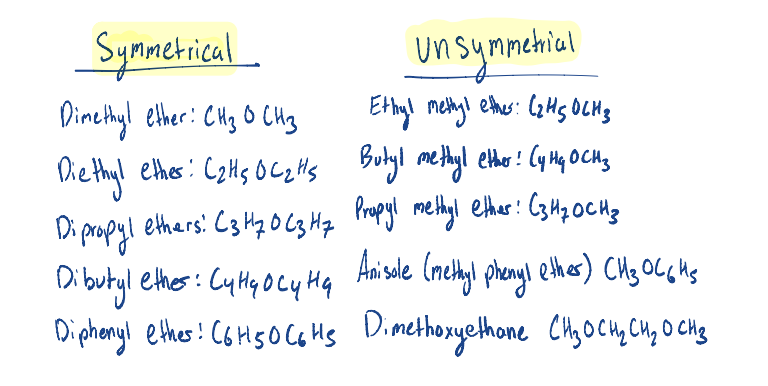 Symmetrical
Dimethyl ether: CH3 O CH3
Diethyl ether: C2H5 O C2H5
Dipropyl ethers: C3H7 O C3H7
Dibutyl ether: C4H9 O C4H9
Diphenyl ether: C6H5 O C6H5
Unsymmetrial
Ethyl methyl ether: C2H5 OCH3
Butyl methyl ether: C4H9 OCH3
Propyl methyl ether: C3H7OCH3
Anisole (methyl phenyl ether) CH3OC6H5
Dimethoxyethane CH3OCH2CH2OCH3